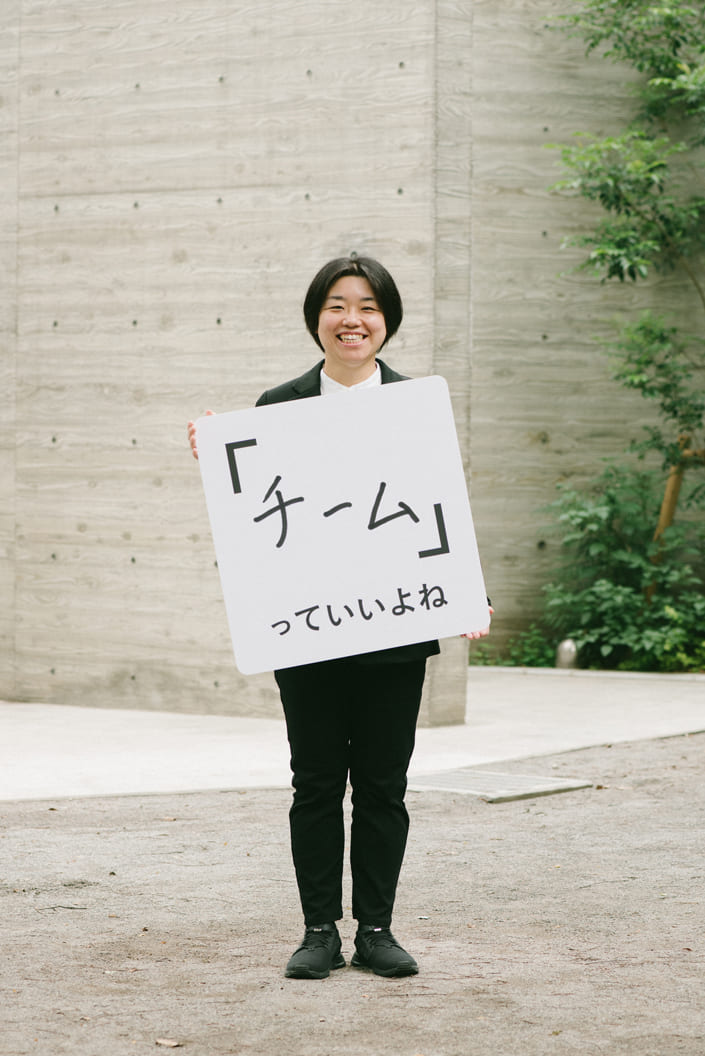 「チーム」
っていいよね